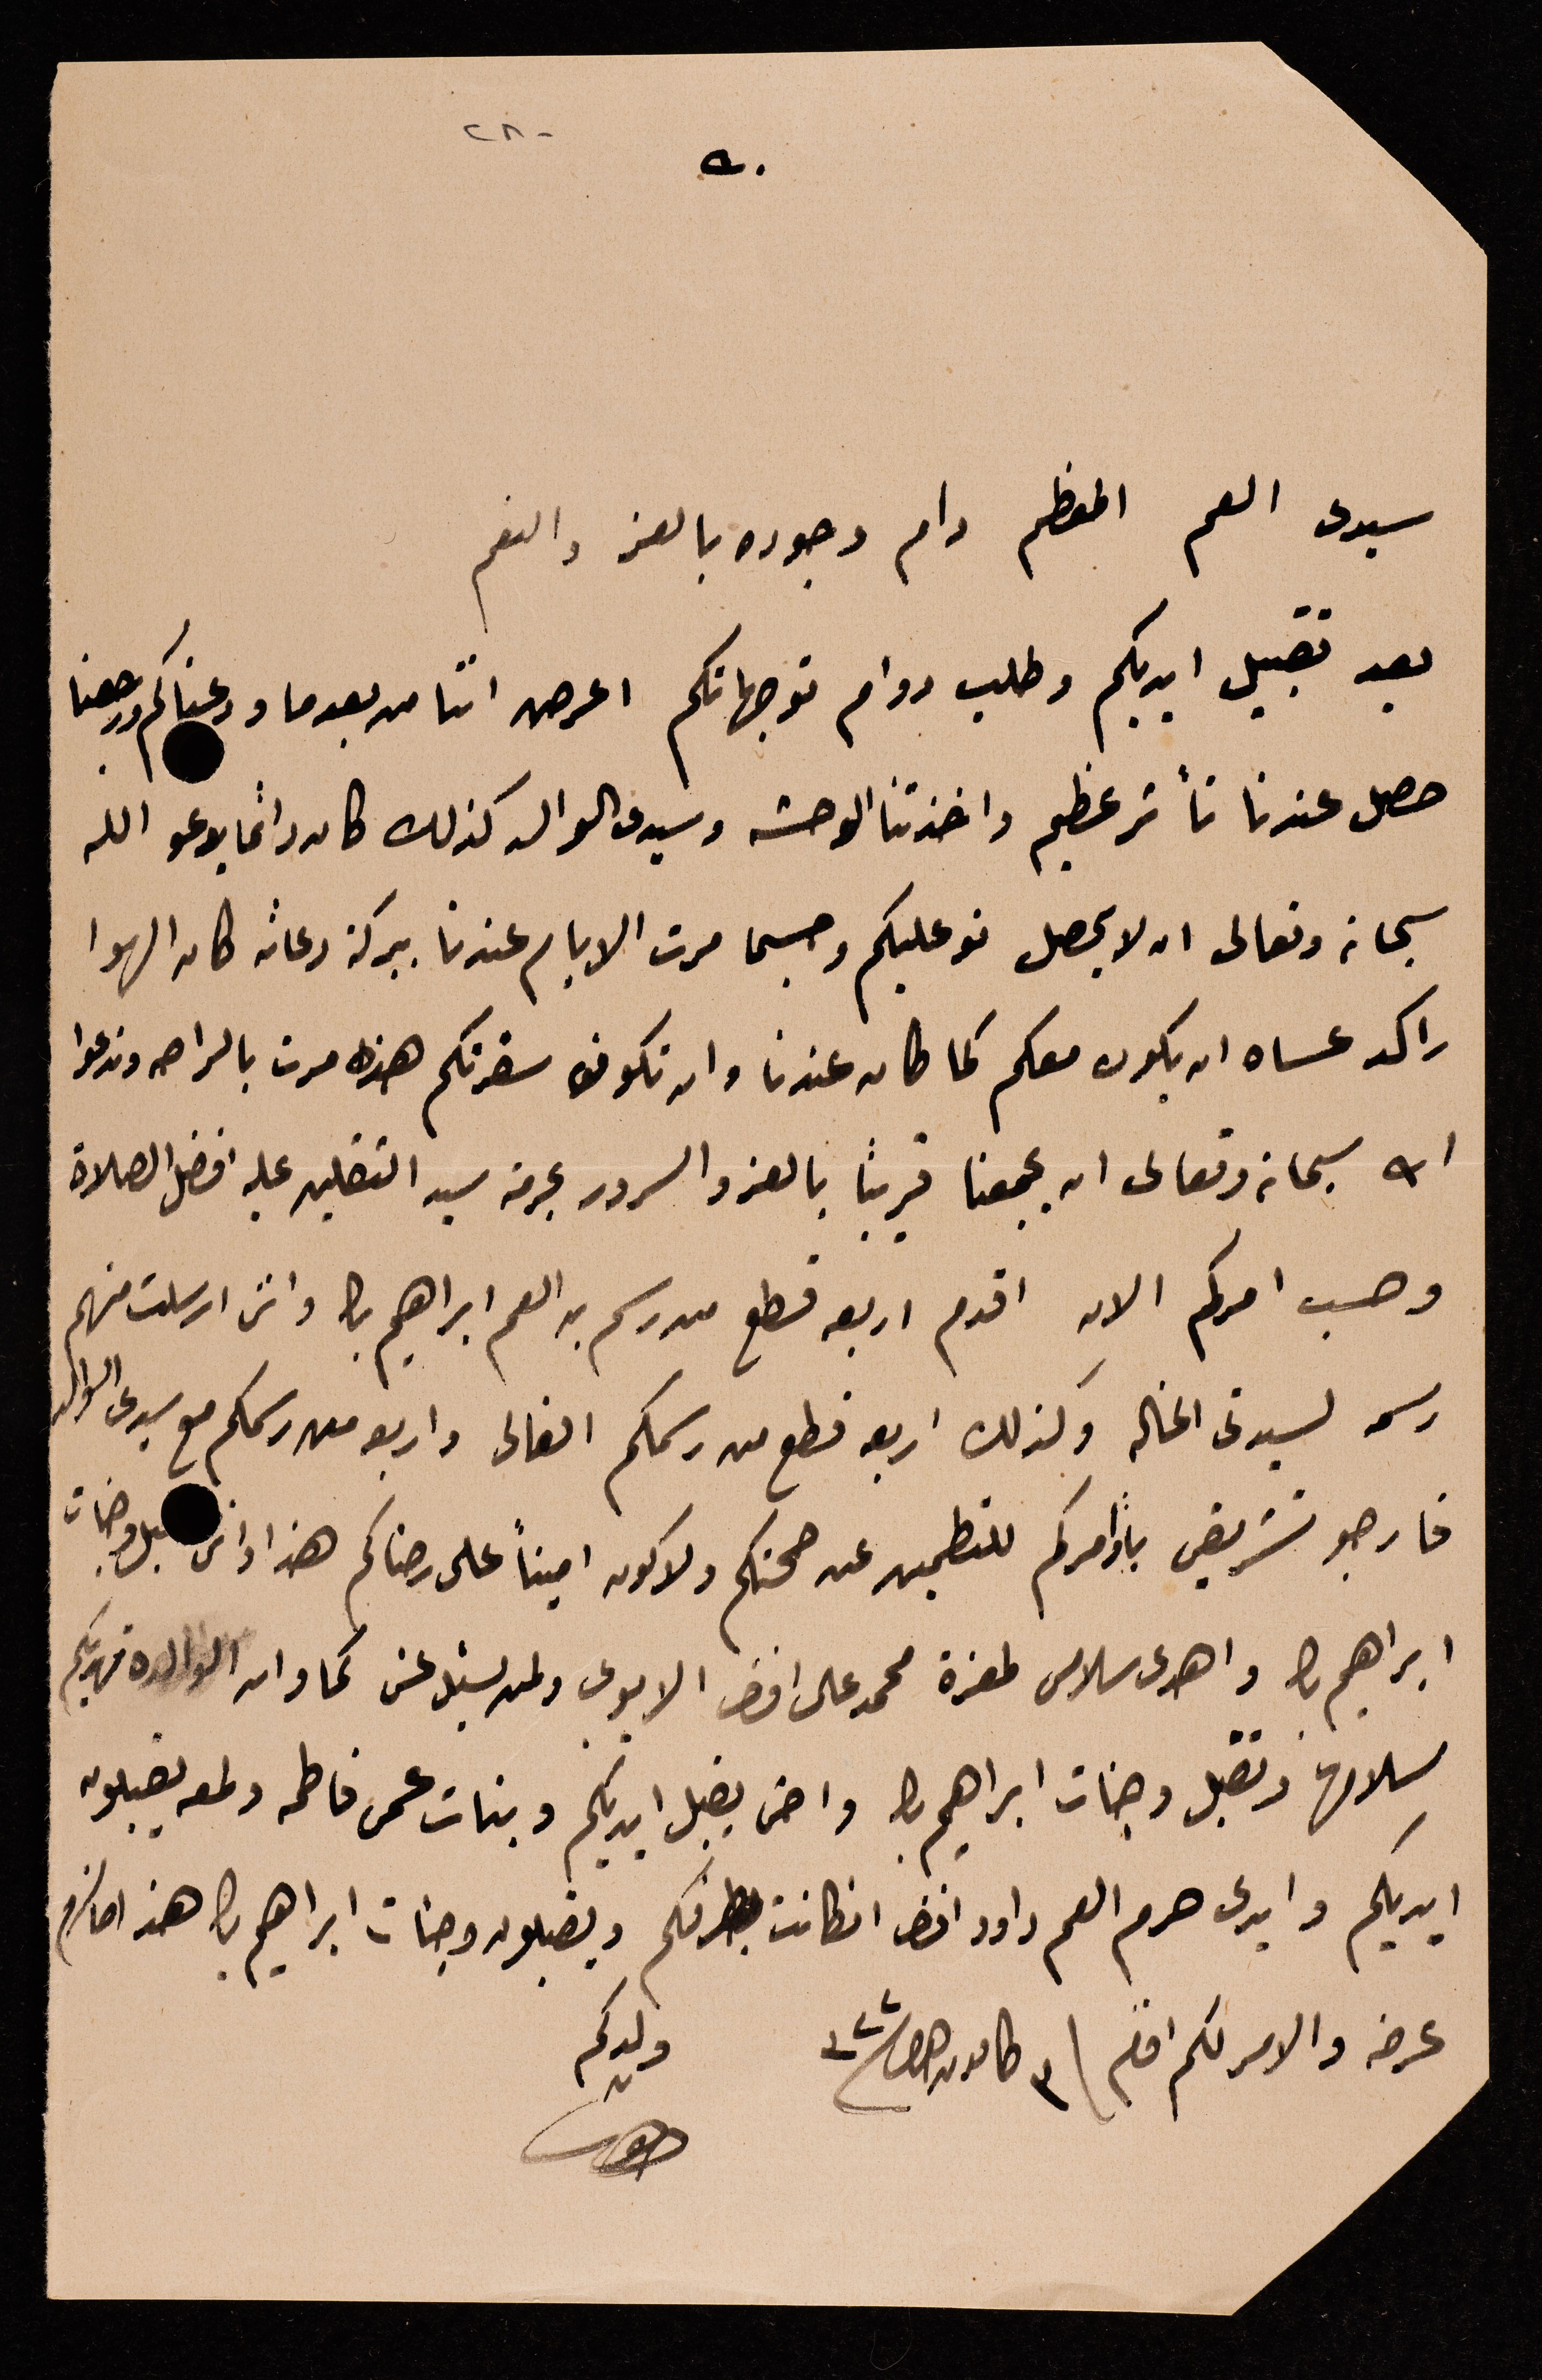 ٢٨٠
سيدى العم المعظم دام وجوده بالعز والنعم
بعد تقبيل ايديكم وطلب دوام توجهاتكم اعرض اننا من بعد ما ودعناكم ورجعنا
حصل عندنا تأثر عظيم واخذتنا الوحشه وسيدى الوالد كذلك كان دائما يدعو الله
سبحانه وتعالى ان لا يحصل نو عليكم وحسبما مرت الايام عندنا ببركة دعائه كان الهوا
راكد عساه ان يكون معكم كما كان عندنا وان تكون سفرتكم هذه مرت بالراحه وندعوا
الله سبحانه وتعالى ان يجمعنا قريبًا بالعز والسرور بحرمة سيد الثقلين عليه افضل الصلاة
وحسب امركم الان اقدم اربعه قطع من رسم العم ابراهيم بك وانى ارسلت منهم
رسمه لسيدتى الخاله وكذلك اربعه قطع من رسمكم الغالى واربعه من رسمكم مع سيدى الوالد
فارجو تشريفى بأوامركم للتطمين عن صحتكم ولاكون امينًا على رضاكم هذا وانى اقبل وجنات
ابراهيم بك واهدى سلامى لعزة محمد على افندى الايوبى ولمن يسئل عنى كما وان الوالده تهديكم
سلامها وتقبل وجنات ابراهيم بك واخى يقبل ايديكم وبنات عمى فاطمه ولمعه يقبلون
ايديكم وايدى حرم العم داود افندى انكانت بطرفكم ويقبلون وجنات ابراهيم بك هذا ما لزم
عرضه والامر لكم افندم ٣ كانون ٣٢٢
ولدكم